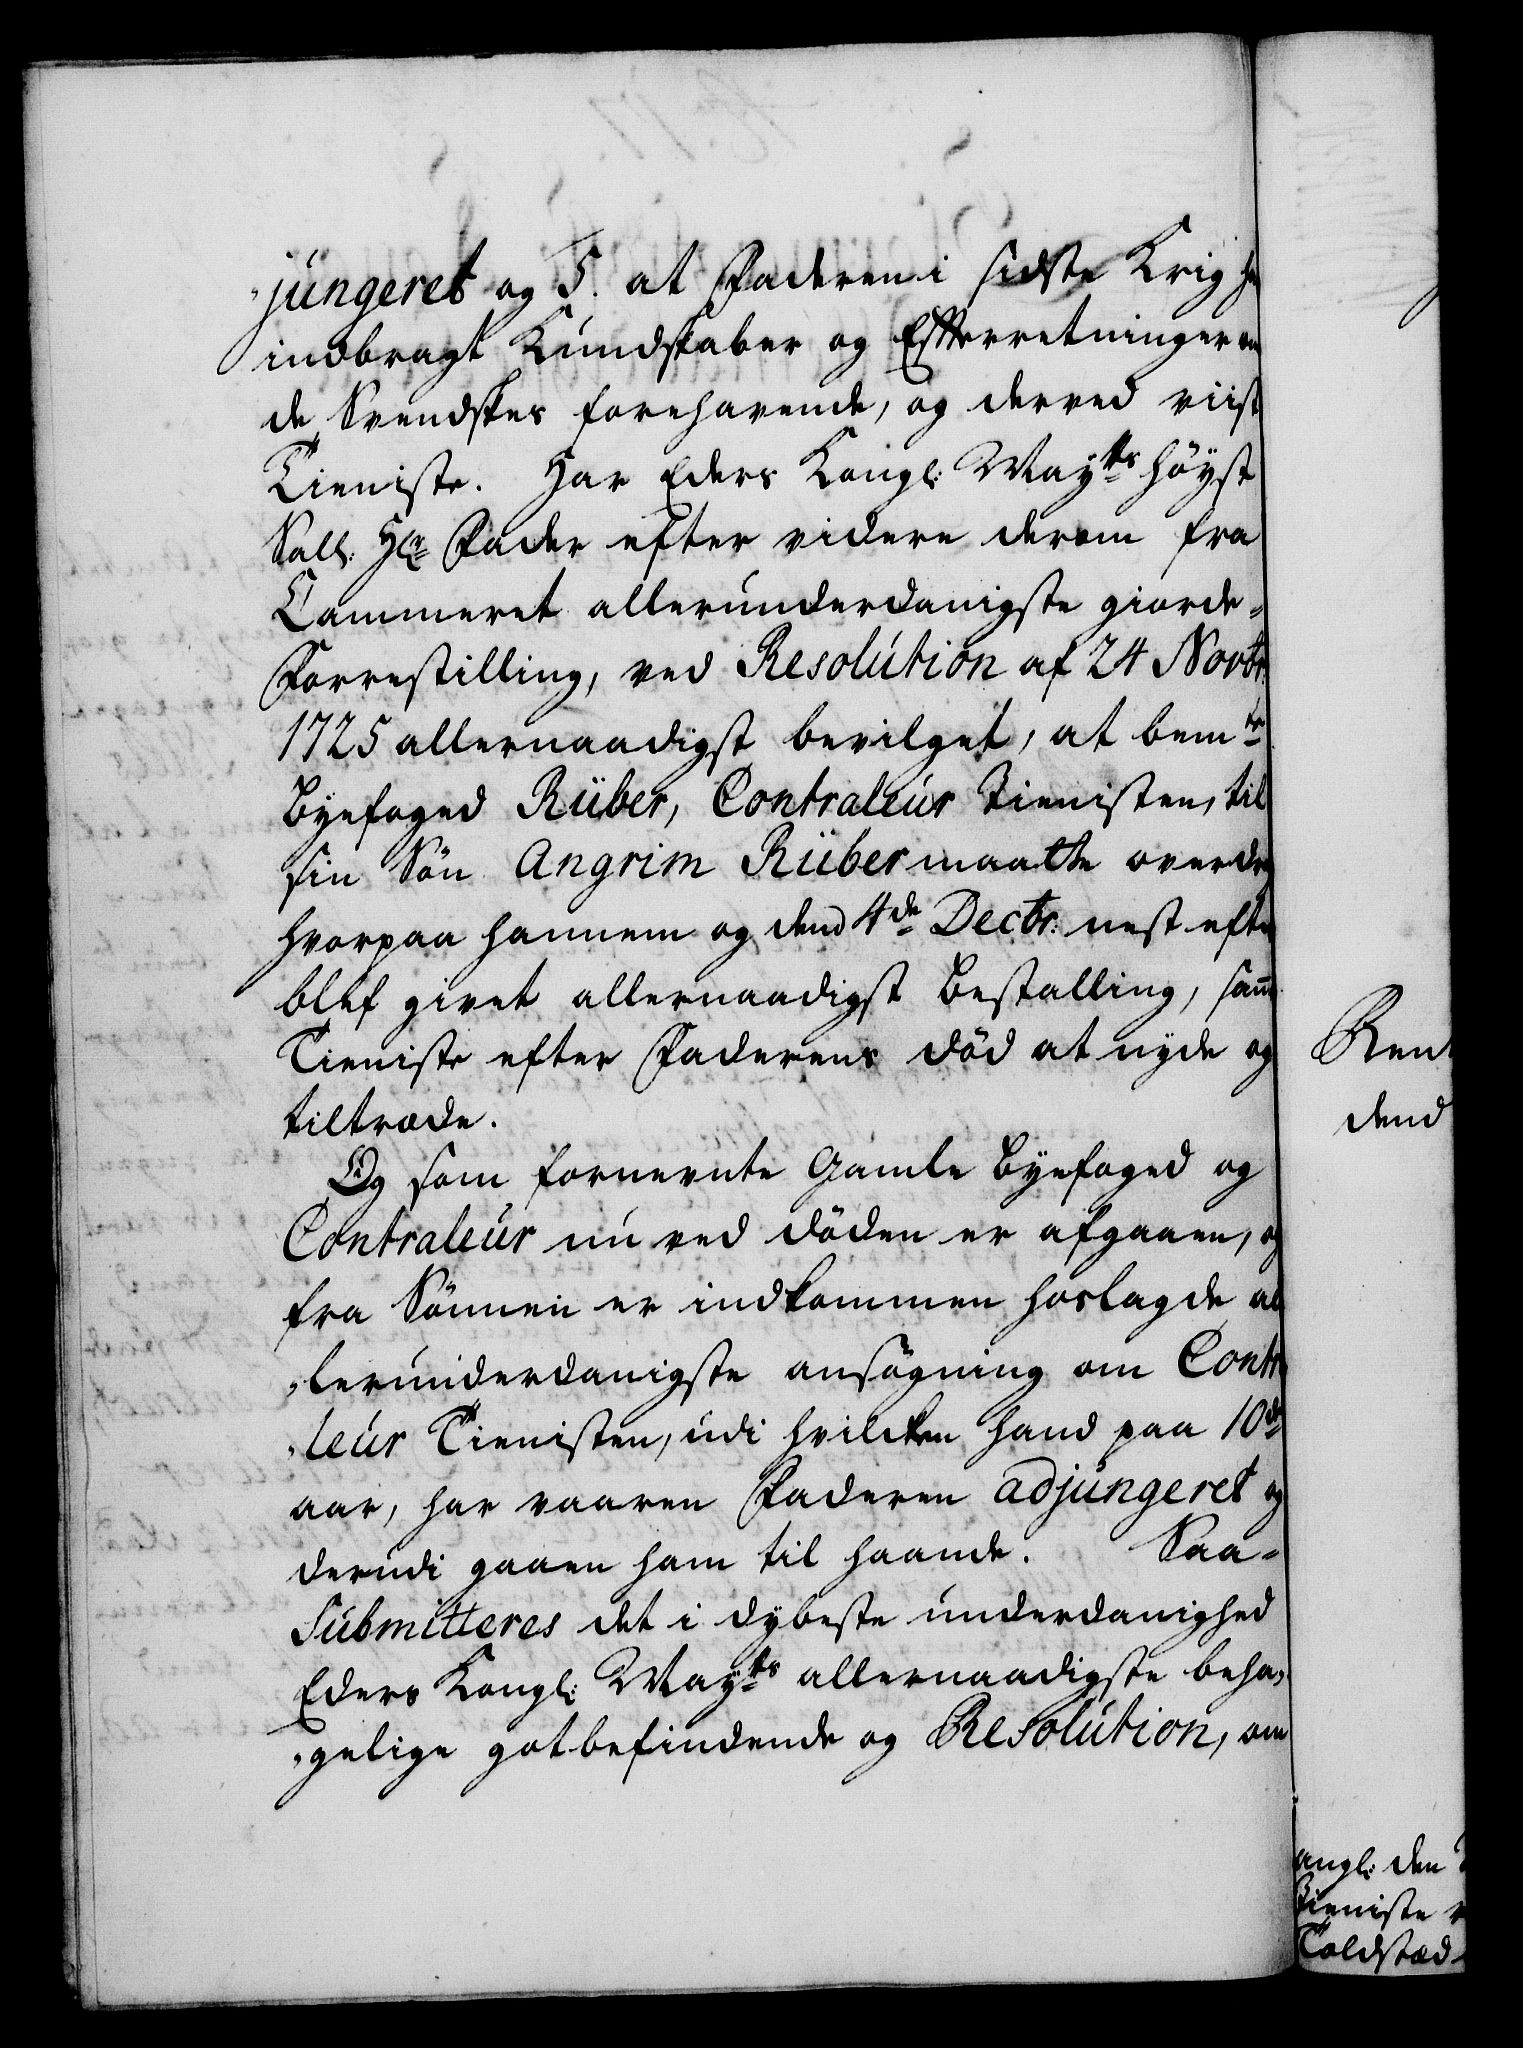 jungeret og 5. at Faderen i sidste Krig h
indbragt Kundskaber og Efterretninger om
de Svendskes forehavende, og derved viist
Tieniste. Har Eders Kongl: Maytts höyst
Sall: Hr Fader efter videre derom fra
Cammeret allerunderdanigste giorde-
Forrestilling, ved Resolution af 24 Novbr:
1725 allernaadigst bevilget, at bemte
Byefoged Rüber, Contraleur Tienisten, til
sin Sön Angrim Rüber maatte overdra
hvorpaa hannem og dend 4de Decbr: nest efter
blef givet allernaadigst Bestalling, samme
Tieniste efter Faderens död at nyde og
tiltræde.
Og som fornevnte Gamle Byefoged og
Contraleur nu ved döden er afgaaen, og
fra Sönnen er indkommen hoslagde al
„lerunderdanigste ansögning om Contra
„leur Tienisten, udi hvilcken hand paa 10de
aar, har vaaren Faderen adjungeret og
derudi gaaen ham til haande. Saa-
Submitteres det i dybeste underdanighed
Eders Kongl: Maytts allernaadigste beha-
„gelige gotbefindende og Resolution, om
Rent
dend
angl: den
Tieniste
Toldstæd